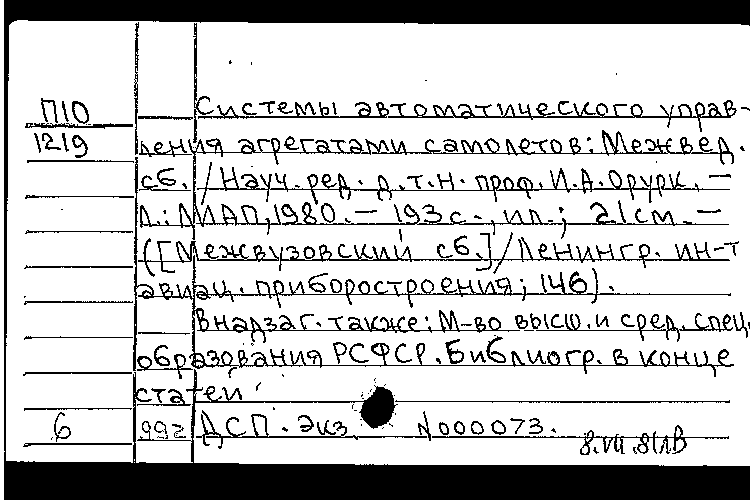 П10 Системы автоматического управ-
1219 ления агрегатами самолетов: Межвед.
сб. / Науч. ред. д.т.н. проф. И.А. Орурк. —
Л.: ЛИАП, 1980. — 193 с., ил.; 21 см. —
([Межвузовский сб.] / Ленингр. ин-т
авиац. приборостроения; 146).
В надзаг. также: М-во высш. и сред. спец.
образования РСФСР. Библиогр. в конце
статей
6 992 ДСП. Экз. N000073.
8.VII.81